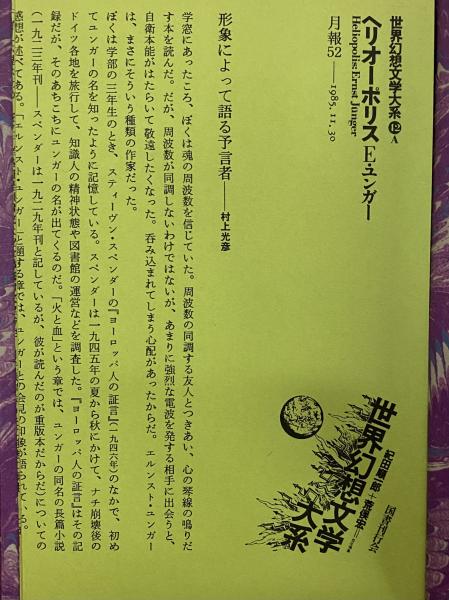 世界幻想文学大系㊷A
ヘリオーポリス E・ユンガー
Heliopolis: Ernst Jünger
月報52——1985. 11. 30
形象によって語る予言者——村上光彦
学窓にあったころ、ぼくは魂の周波数を信じていた。周波数の同調する友人とつきあい、心の琴線の鳴りだ
す本を読んだ。だが、周波数が同調しないわけではないが、あまりに強烈な電波を発する相手に出会うと、
自衛本能がはたらいて敬遠したくなった。呑み込まれてしまう心配があったからだ。エルンスト・ユンガー
は、まさにそういう種類の作家だった。
ぼくは学部の三年生のとき、スティーヴン・スペンダーの『ヨーロッパ人の証言』(一九四六年)のなかで、初め
てユンガーの名を知ったように記憶している。スペンダーは一九四五年の夏から秋にかけて、ナチ崩壊後の
ドイツ各地を旅行して、知識人の精神状態や図書館の運営などを調査した。『ヨーロッパ人の証言』はその記
録だが、そのあちこちにユンガーの名が出てくるのだ。「火と血」という章では、ユンガーの同名の長篇小説
(一九二三年刊——スペンダーは一九二九年刊と記しているが、彼が読んだのが重版本だからだ)についての
感想が述べてある。「エルンスト・ユンガー」と題する章では、ユンガーとの会見の印象が語られている。
国書刊行会
紀田順一郎+荒俣宏
世界幻想文学大系